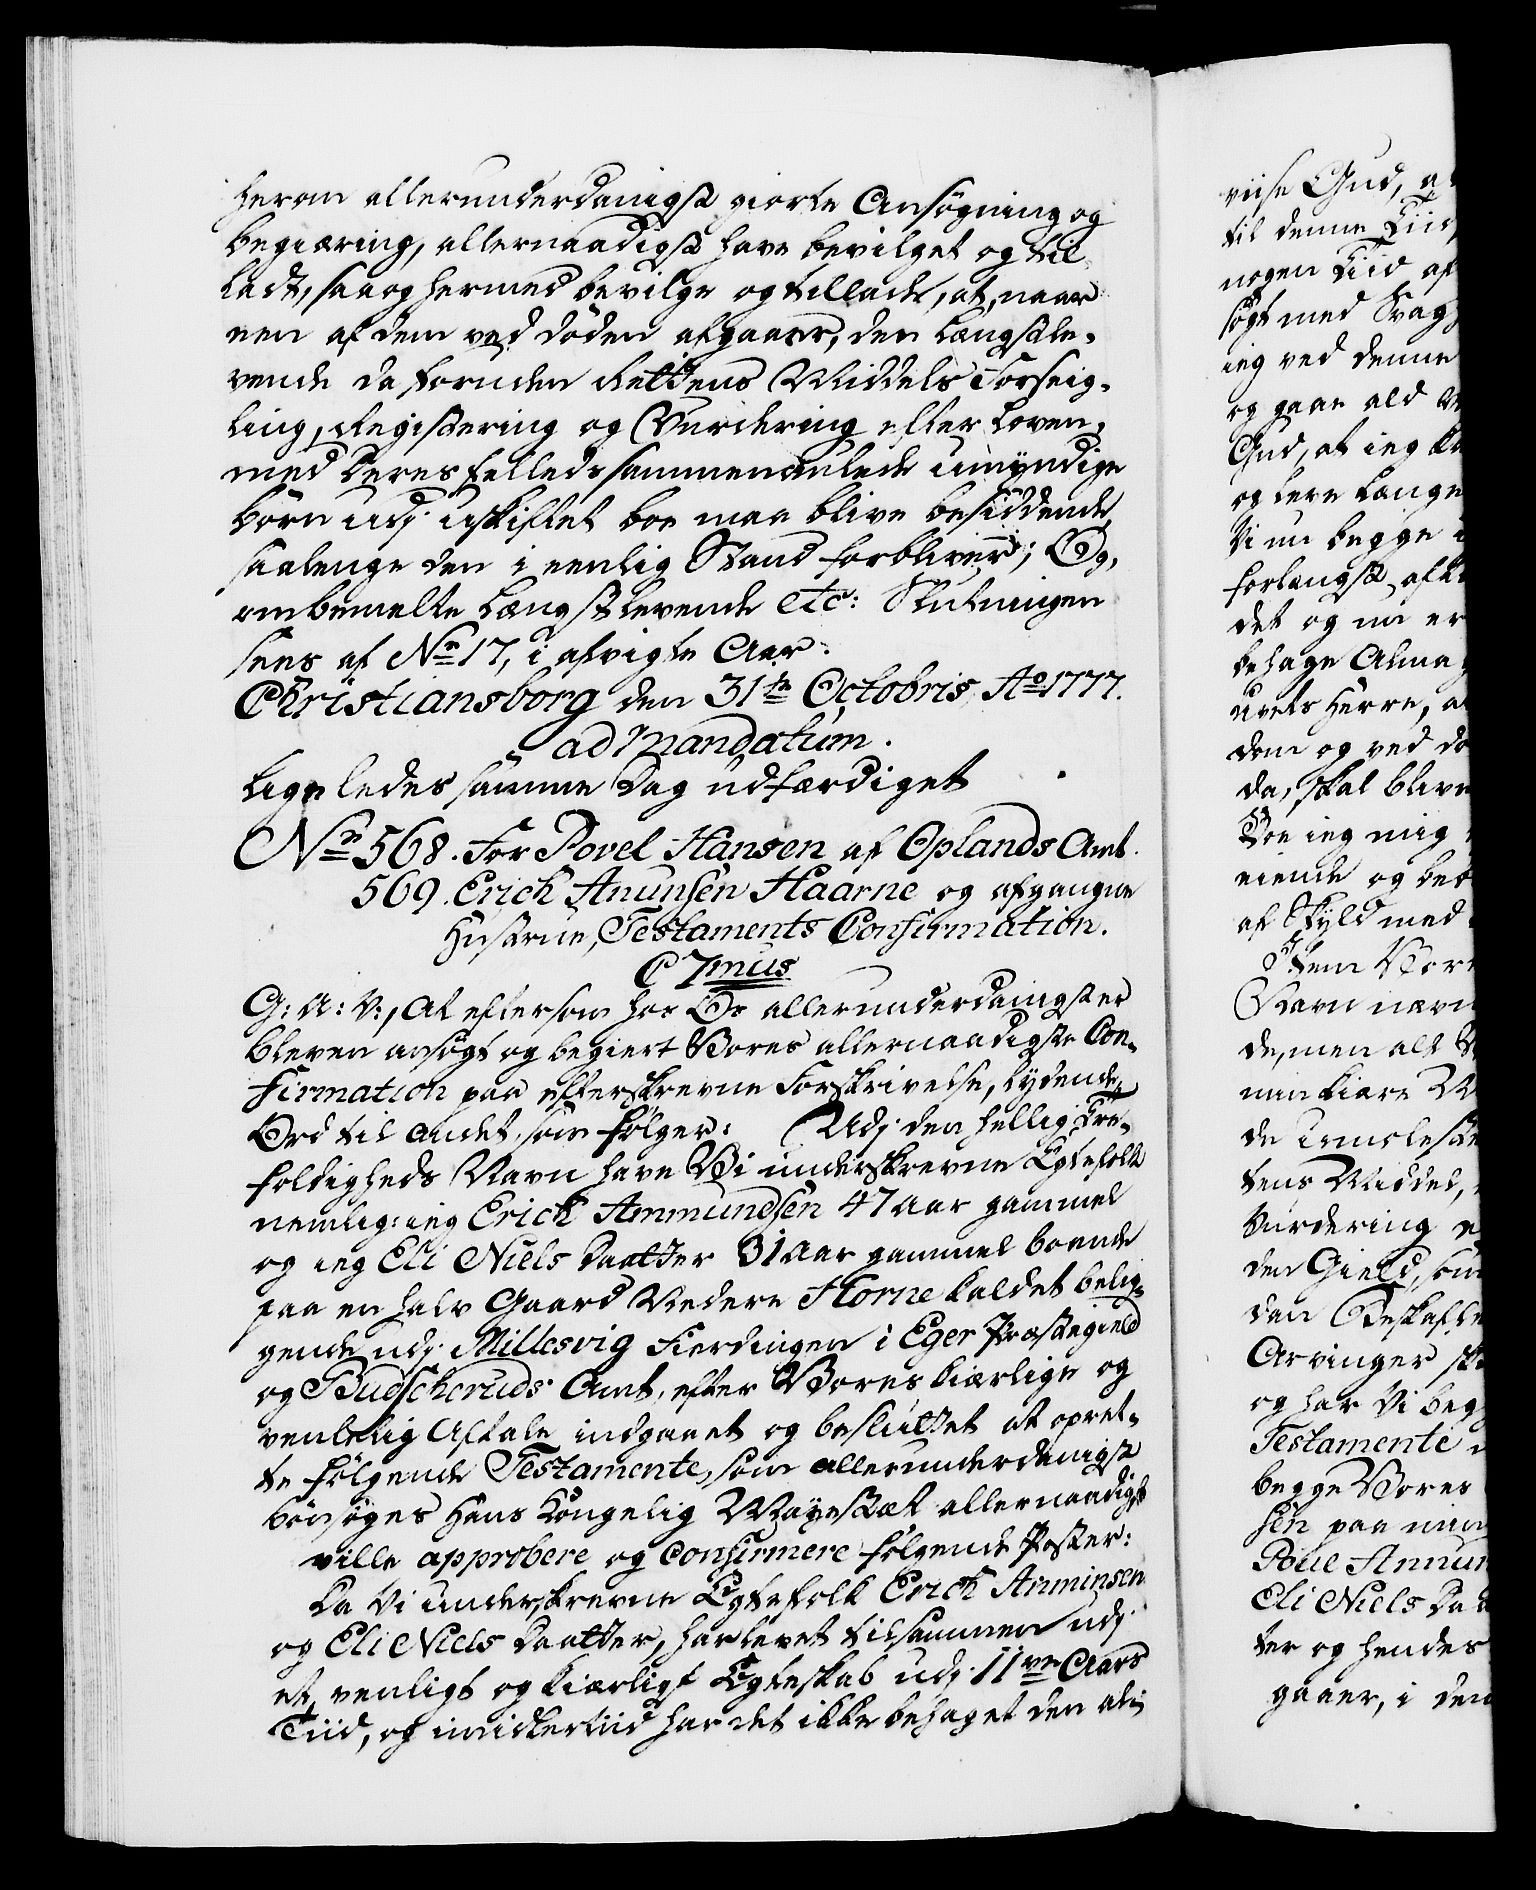 herom allerunderdanigst giorte Ansøgning og
begiæring, allernaadigst have bevilget og til-
ladt, saa og hermed bevilge og tillade, at, naar
een af dem ved døden afgaaer, den længstle-
vende da foruden Rettens Middels Forseig-
ling, Registering og Vurdering efter Loven,
med deres felleds sammenavlede umyndige
børn udj uskiftet boe maa blive besiddende
saalenge den i eenlig Stand forbliver; Og,
ombemelte Længstlevende etc: Slutningen
sees af No 17, i afvigte Aar.
Christiansborg den 31te Octobris Ao 1777.
ad Mandatum.
Ligeledes samme Dag udfærdiget
No 568. For Povel Hansen af Oplands Amt.
569. Erich Anunsen Haarne og afgangne
Hustrue, Testaments Confirmation.
C 7mus
G: A: V:, At eftersom hos Os allerunderdanigst er
bleven ansøgt og begiert Vores allernaadigste Con-
firmation paa efterskrevne Forskrivelse, lydende
Ord til andet, som følger: Udj den hellig Tre-
foldigheds Navn have Vi underskrevne Egtefolk
nemlig: ieg Erich Ammundsen 47 aar gammel
og ieg Eli Niels Daatter 31 aar gammel boende
paa en halv Gaard Nedere Horne kaldet belig-
gende udj Millesvig Fierdingen i Eger Præstegield
og Budscheruds Amt, efter Vores kiærlige og
venlelig Aftale indgaaet og besluttet at opret-
te følgende Testamente, som allerunderdanigst
bønsøges Hans Kongelig Mayestæt allernaadigst
ville approbere og Confirmere følgende Poster:
Da Vi underskrevne Egtefolk Erich Anminsen
og Eli Niels Daatter, har levet tilsammen udj
et venligt og kiærligt Egteskab udj 11ve Aars
Tiid, og imidlertiid har det ikke behaget den al-
viise Gud, a
til denne Tiid,
nogen Tiid af
søgt med Svag
ieg ved denne
og gaae ald
Gud, at ieg
og leve længe
Vi nu begge
forlængst
det og nu er
behage Alma
Herre,
dom og ved dø
da, skal blive
Doe ieg mig
eiende og
af Skyld med
Item Vore
Navn nævn
de, men alt
min kiære
de umeleste
tens Middel,
Vurdering e
den Gield, som
dan Beskaffe
Arvinger sk
og har Vi beg
Testamente
begge Vores
sen paa min
Poul Anmun
Eli Niels Da
ter og hendes
gaaer, i den